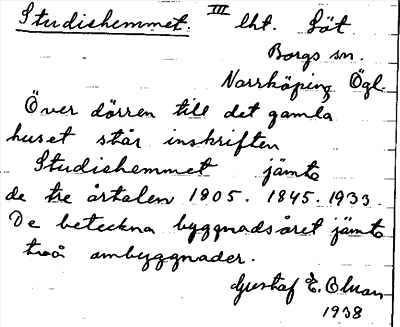 Studiehemmet. III lht. Löt
Borgs sn.
Norrköping Ögl.
Över dörren till det gamla
huset står inskriften
Studiehemmet jämte
de tre årtalen 1805. 1845. 1933.
De beteckna byggnadsåret jämte
två ombyggnader.
Gustaf E.
1938